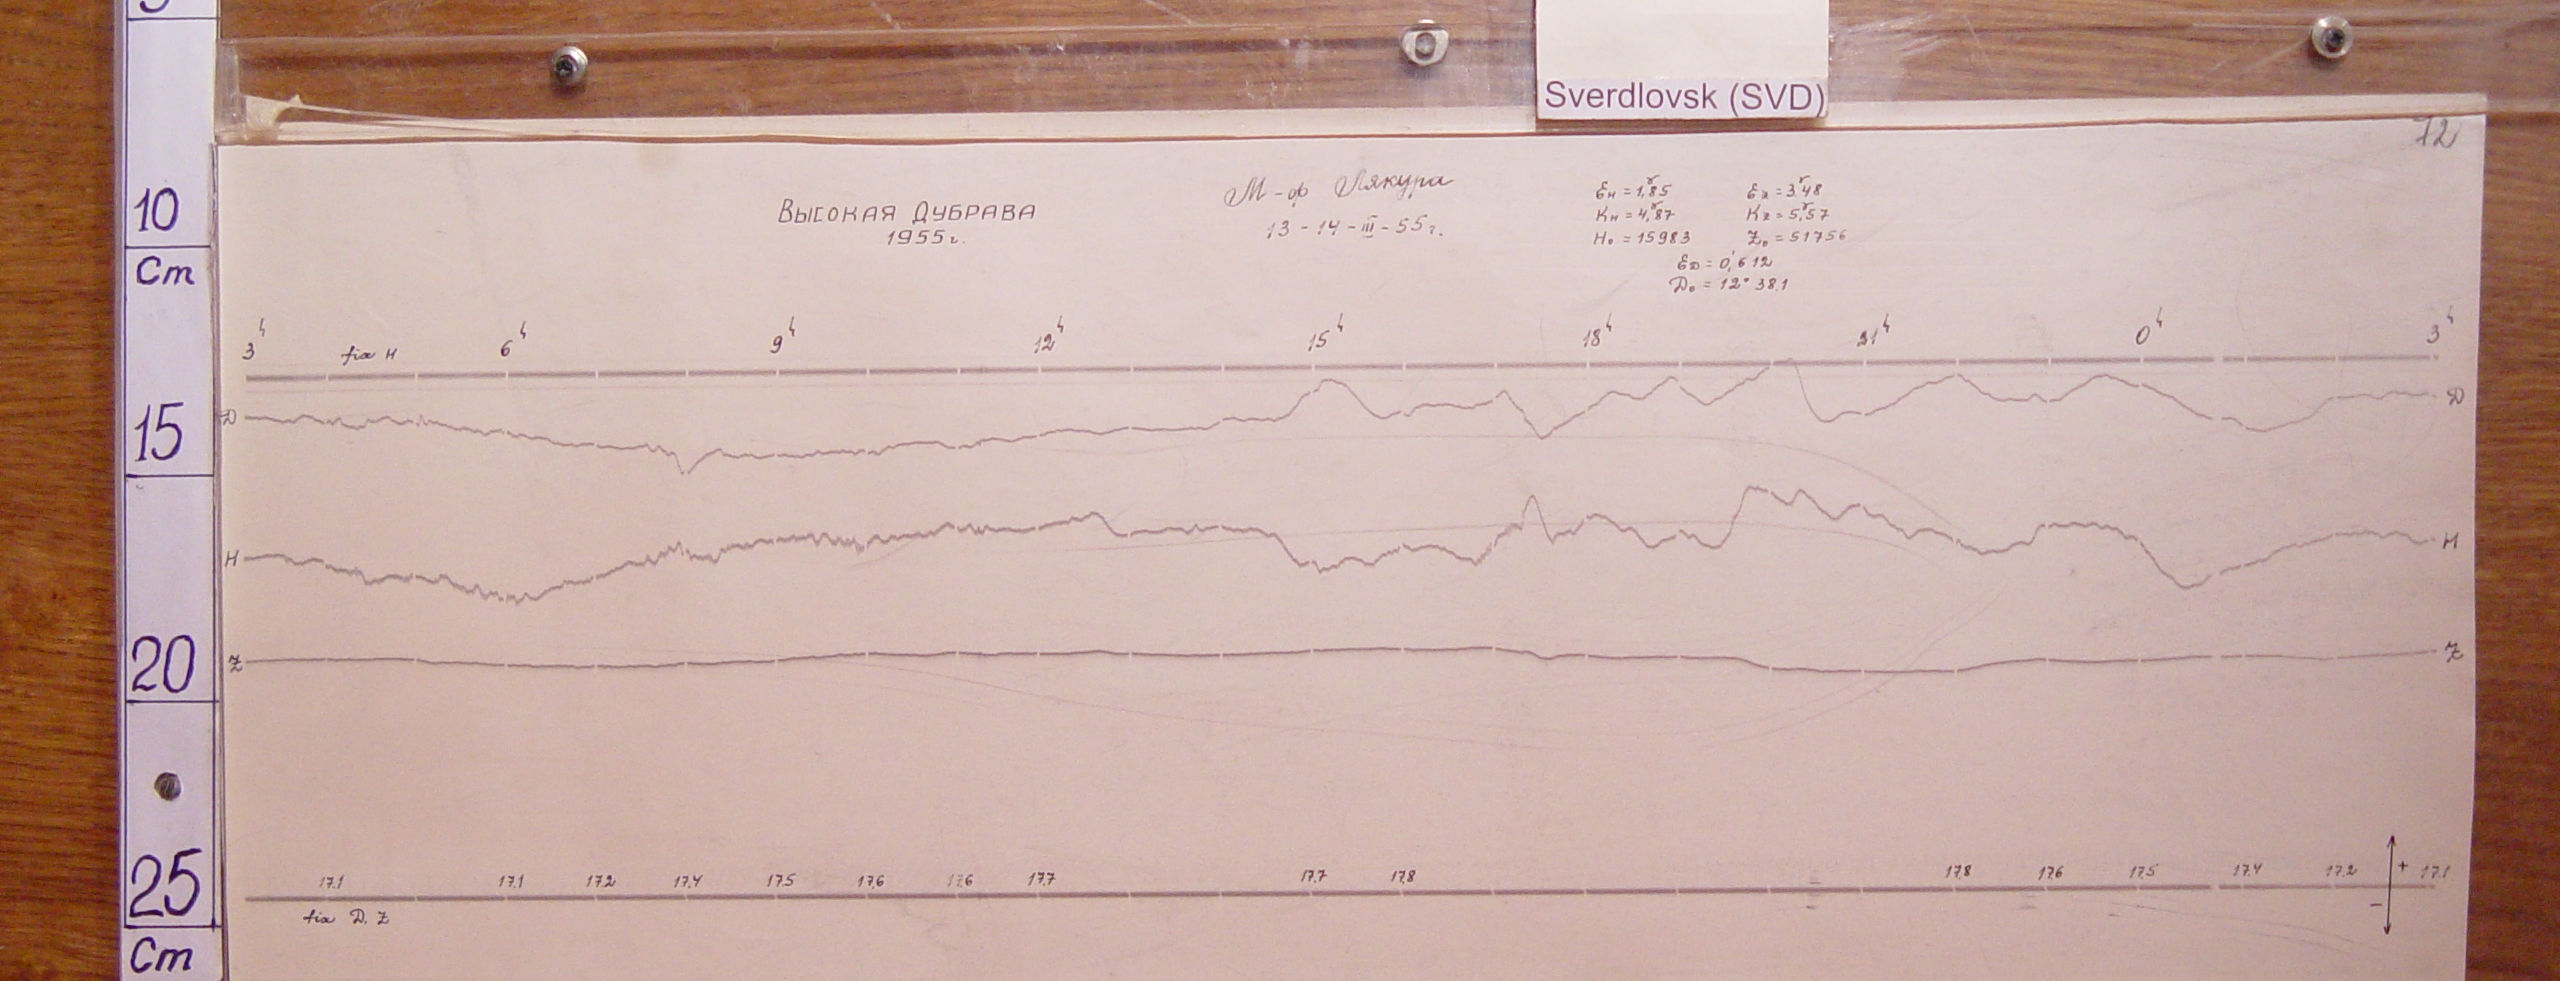 Sverdlovsk (SVD)
72
Высокая Дубрава
1955г.
М-ф Лякура
13-14-III-55г.
εн = 1,85 εz = 3,48
Kн = 4,87 Kz = 5,57
H₀ = 15983 Z₀ = 51756
εD = 0,612
D₀ = 12° 38.1
3ч fix H 6ч 9ч 12ч 15ч 18ч 21ч 0ч 3ч
D D
H H
Z Z
17.1 17.1 17.2 17.4 17.5 17.6 17.6 17.7 17.7 17.8 17.8 17.6 17.5 17.4 17.2 + 17.1
fix D. Z −
10
Cm
15
20
25
Cm